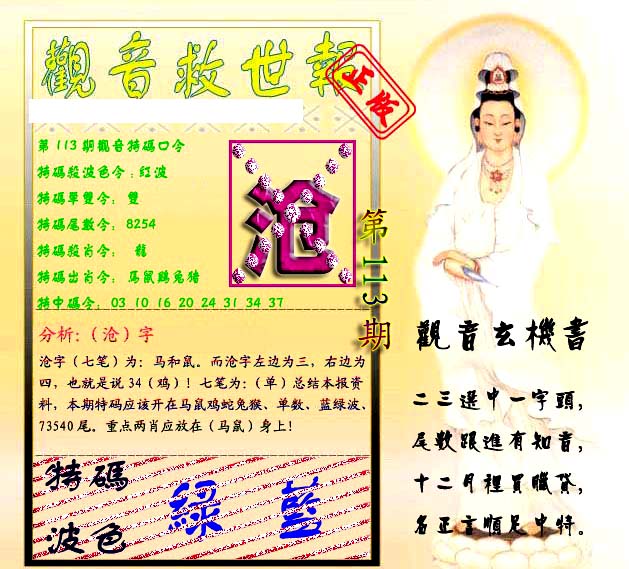 觀音救世報
正版
第113期觀音特碼口令
特碼殺波色令:紅波
特碼單雙令: 雙
特碼尾數令: 8254
特碼殺肖令: 龍
特碼出肖令: 馬鼠鷄兔猪
特中碼令: 03 10 16 20 24 31 34 37
沧
第113期
分析:(沧)字
沧字(七笔)为:马和鼠。而沧字左边为三,右边为
四,也就是说34(鸡)!七笔为:(单)总结本报资
料,本期特码应该开在马鼠鸡蛇兔猴、单数、蓝绿波、
73540尾。重点两肖应放在(马鼠)身上!
特碼
波色
綠 藍
觀音玄機書
二三選中一字頭,
尾數跟進有知音,
十二月裡買臘貨,
名正言順是中特。